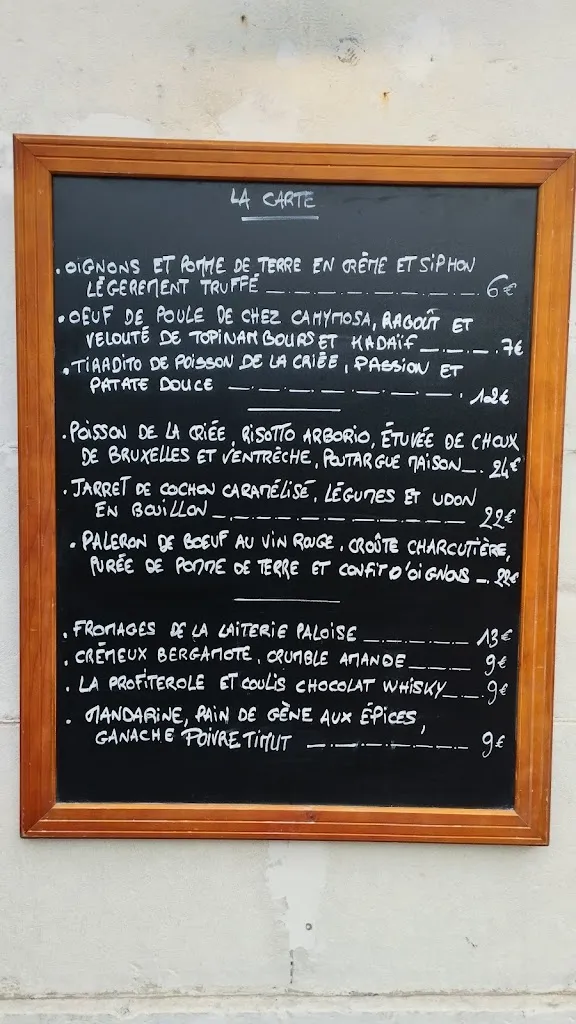 LA CARTE
. OIGNONS ET POMME DE TERRE EN CRÈME ET SIPHON
LÉGEREMENT TRUFFÉ 6€
. OEUF DE POULE DE CHEZ CAMYMOSA, RAGOÛT ET
VELOUTÉ DE TOPINAMBOURS ET KADAÏF 7€
. TIRADITO DE POISSON DE LA CRIÉE, PASSION ET
PATATE DOUCE 12€
. POISSON DE LA CRIÉE, RISOTTO ARBORIO, ÉTUVÉE DE CHOUX
DE BRUXELLES ET VENTRÈCHE, POUTARGUE MAISON 24€
. JARRET DE COCHON CARAMÉLISÉ, LÉGUMES ET UDON
EN BOUILLON 22€
. PALERON DE BOEUF AU VIN ROUGE, CROÛTE CHARCUTIÈRE,
PURÉE DE POMME DE TERRE ET CONFIT D'OIGNONS 22€
. FROMAGES DE LA LAITERIE PALOISE 13€
. CRÉMEUX BERGAMOTE, CRUMBLE AMANDE 9€
. LA PROFITEROLE ET COULIS CHOCOLAT WHISKY 9€
. MANDARINE, PAIN DE GÈNE AUX ÉPICES,
GANACHE POIVRE TIMUT 9€